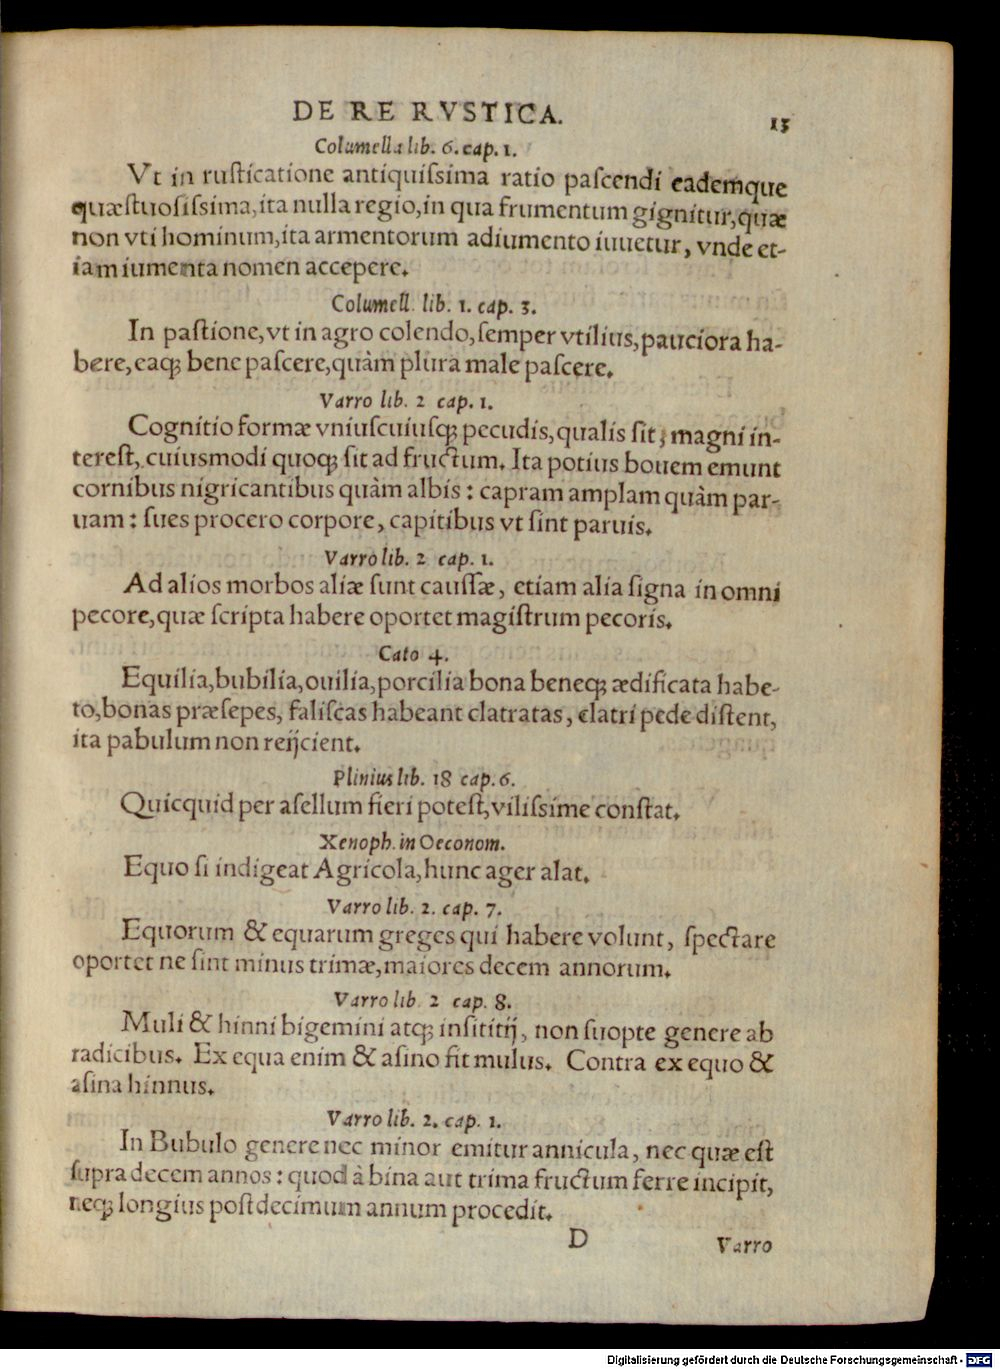 DE RE RVSTICA. 13
Columella lib. 6. cap. 1.
Vt in rusticatione antiquissima ratio pascendi eademque
quæstuosissima, ita nulla regio, in qua frumentum gignitur, quæ
non vti hominum, ita armentorum adiumento iuuetur, vnde et-
iam iumenta nomen accepere.
Columell. lib. 1. cap. 3.
In pastione, vt in agro colendo, semper vtilius, pauciora ha-
bere, eaq; bene pascere, quàm plura male pascere.
Varro lib. 2 cap. 1.
Cognitio formæ vniuscuiusq; pecudis, qualis sit, magni in-
terest, cuiusmodi quoq; sit ad fructum. Ita potius bouem emunt
cornibus nigricantibus quàm albis: capram amplam quàm par-
uam: sues procero corpore, capitibus vt sint paruis.
Varro lib. 2 cap. 1.
Ad alios morbos aliæ sunt caussæ, etiam alia signa in omni
pecore, quæ scripta habere oportet magistrum pecoris.
Cato 4.
Equilia, bubilia, ouilia, porcilia bona beneq; ædificata habe-
to, bonas præsepes, faliscas habeant clatratas, clatri pede distent,
ita pabulum non reijcient.
Plinius lib. 18 cap. 6.
Quicquid per asellum fieri potest, vilissime constat.
Xenoph. in Oeconom.
Equo si indigeat Agricola, hunc ager alat.
Varro lib. 2. cap. 7.
Equorum & equarum greges qui habere volunt, spectare
oportet ne sint minus trimæ, maiores decem annorum.
Varro lib. 2 cap. 8.
Muli & hinni bigemini atq; insititij, non suopte genere ab
radicibus. Ex equa enim & asino fit mulus. Contra ex equo &
asina hinnus.
Varro lib. 2. cap. 1.
In Bubulo genere nec minor emitur annicula, nec quæ est
supra decem annos: quod à bina aut trima fructum ferre incipit,
neq; longius post decimum annum procedit.
D Varro
Digitalisierung gefördert durch die Deutsche Forschungsgemeinschaft - DFG